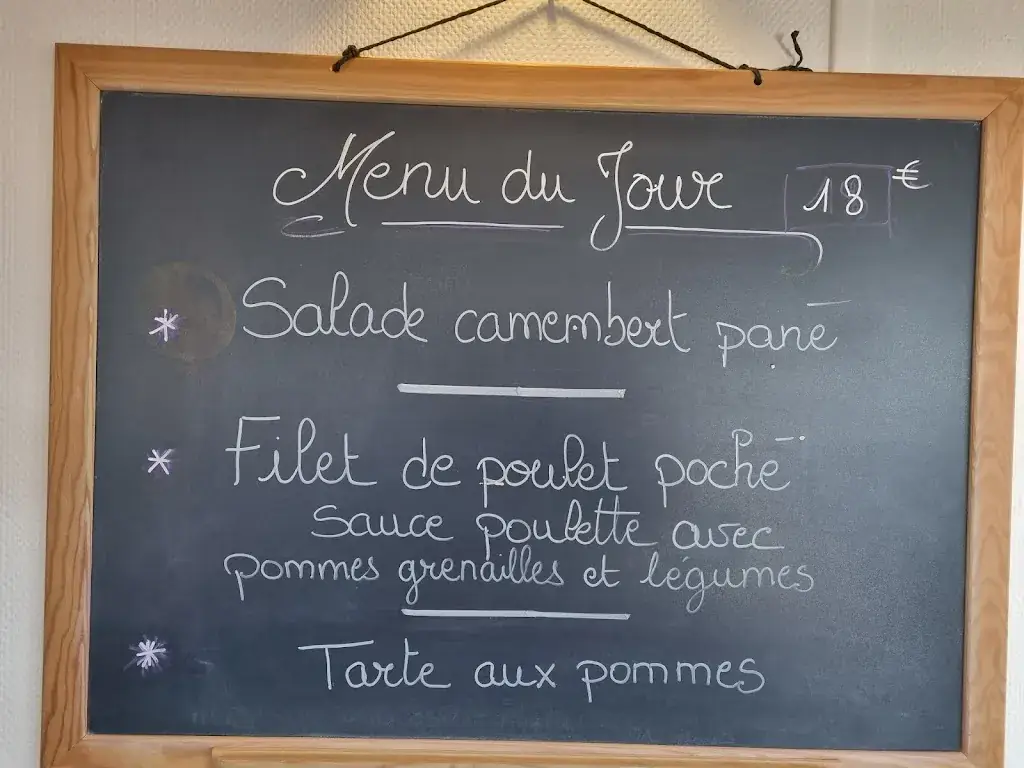 Menu du Jour 18 €
* Salade camembert pané
* Filet de poulet poché
sauce poulette avec
pommes grenailles et légumes
* Tarte aux pommes